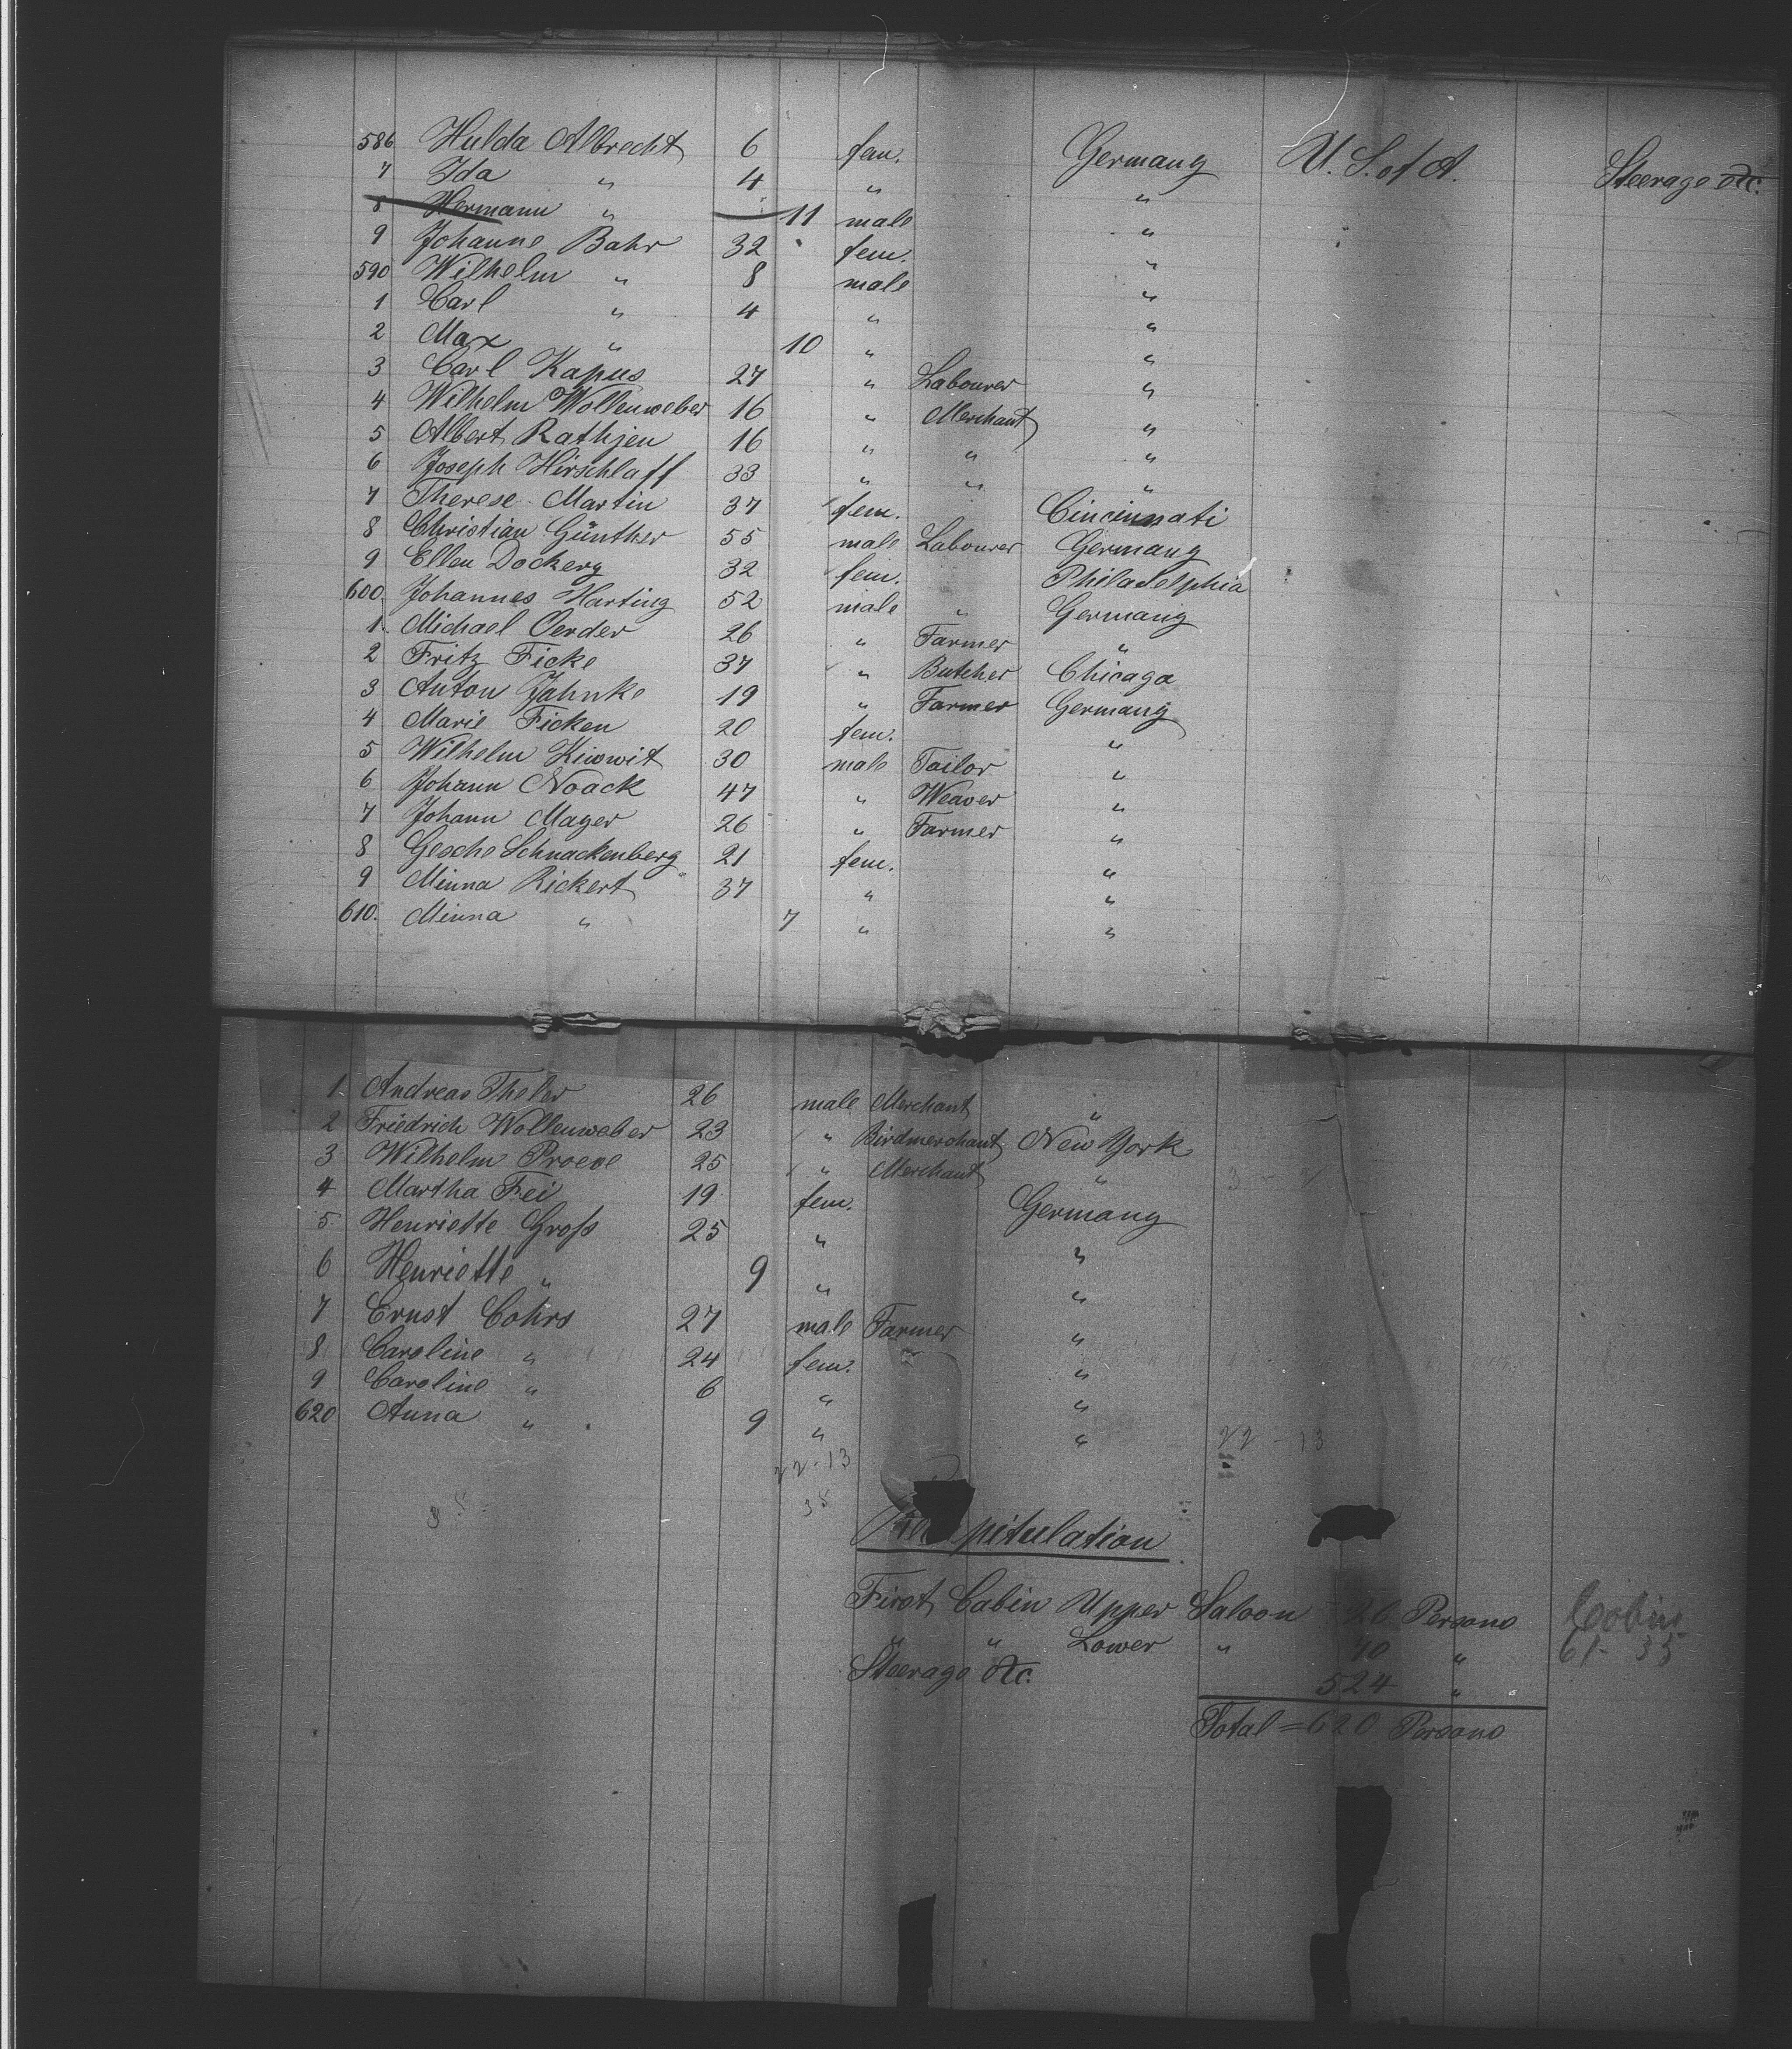 586 Hulda Albrecht 6 fem. Germany U. S. of A. Steerage etc.
7 Ida " 4 " "
8 Hermann " 11 male "
9 Johanne Bahr 32 fem. "
590 Wilhelm " 8 male "
1 Carl " 4 " "
2 Max " 10 " "
3 Carl Kapus 27 " Labourer "
4 Wilhelm Wollenweber 16 " Merchant "
5 Albert Rathjen 16 " " "
6 Joseph Hirschlaff 33 " " "
7 Therese Martin 37 fem. Cincinnati
8 Christian Günther 55 male Labourer Germany
9 Ellen Dockery 32 fem. Philadelphia
600. Johannes Harting 52 male " Germany
1. Michael Oerder 26 " Farmer "
2 Fritz Ficke 37 " Butcher Chicago
3 Anton Jahnke 19 " Farmer Germany
4 Marie Ficken 20 fem. "
5 Wilhelm 30 male Tailor "
6 Johann Noack 47 " Weaver "
7 Johann Mayer 26 " Farmer "
8 Gesche Schnackenberg 21 fem. "
9 Minna Rickert 37 " "
610. Minna " 7 " "
1. Andreas Theler 26 male Merchant "
2 Friedrich Wollenweber 23 " Birdmerchant New York
3 Wilhelm Proeve 25 " Merchant "
4 Martha Fei 19 fem. Germany
5. Henriette Groß 25 " "
6 Henriette " 9 " "
7 Ernst Cohrs 27 male Farmer "
8 Caroline " 24 fem. "
9 Caroline " 6 " "
620 Anna " 9 " "
22-13 22-13
38
Recapitulation.
First Cabin Upper Saloon 26 Persons Cabin
" " Lower " 70 " 61-35
Steerage etc. 524 "
Total = 620 Persons